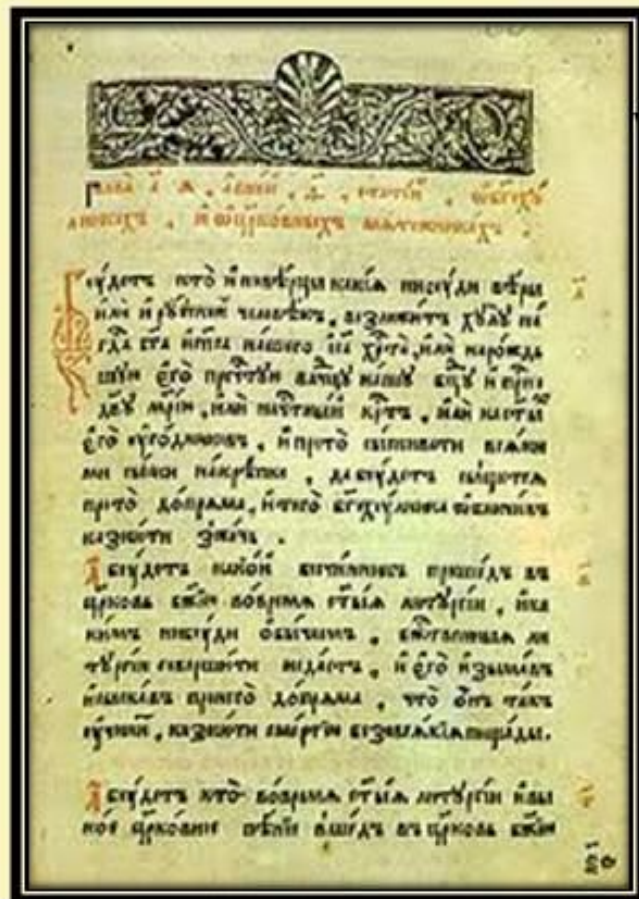 Глава а҃ . а в ней , статей , ѡ бг҃охꙋ
лникехъ , и ѡ цр҃ковныхъ мятежникехъ .
Бꙋдетъ кто иновѣрцы какія нибꙋди вѣры
или и рꙋскии человѣкъ , возложитъ хꙋлꙋ на
гд҃а бг҃а и сп҃са нашего іс҃а хрт҃а , или на рождь
шꙋю его прчт҃ꙋю влдчцꙋ нашꙋ бц҃ꙋ и прно
дв҃ꙋ мр҃ію , или на чт҃ныи крт҃ъ , или на ст҃ыхъ
его ꙋгодниковъ , и про то сыскивати всяки
ми сыски накрѣпко , да бꙋдетъ сыщется
про то допряма , и того бг҃охꙋлника ѡбличивъ
казнити зжечь .
А бꙋдетъ какой безчинникъ пришедъ въ
цр҃ковь бж҃ію во время ст҃ыя литꙋргіи , и ка
кимъ нибꙋди ѡбычаемъ , бжт҃венныя ли
тꙋргіи совершити не дастъ , и его изымавъ
и сыскавъ про него допряма , что ѡнъ такъ
ꙋчинитъ , казнити смертію безо всякія пощады .
А бꙋдетъ кто во время ст҃ыя литꙋргіи и в ы
ное цр҃ковное пѣніе вшедъ въ цр҃ковь бж҃ію